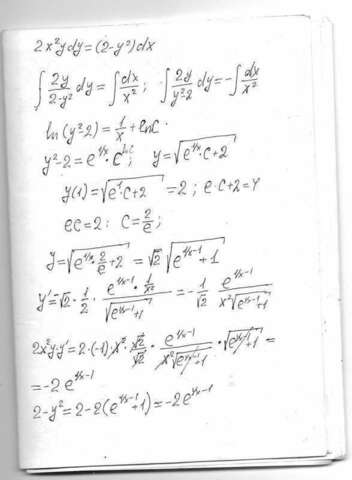 2x²ydy=(2-y²)dx
∫ 2y/(2-y²) dy = ∫ dx/x² ; ∫ 2y/(y²-2) dy = -∫ dx/x²
ln(y²-2) = 1/x + lnC.
y²-2 = e^(1/x) · e^(lnC) ; y = √(e^(1/x) · C+2)
y(1) = √(e¹·C+2) = 2 ; e·C+2=4
eC=2 : C = 2/e ;
y = √(e^(1/x) · 2/e + 2) = √2 √(e^(1/x-1)+1)
y' = √2 · 1/2 · (e^(1/x-1) · 1/x²)/√(e^(1/x-1)+1) = -1/√2 · e^(1/x-1)/(x²√(e^(1/x-1)+1))
2x²y·y' = 2·(-1)·x² · √2/√2 · e^(1/x-1)/(x²√(e^(1/x-1)+1)) · √(e^(1/x-1)+1) =
= -2e^(1/x-1)
2-y² = 2-2(e^(1/x-1)+1) = -2e^(1/x-1)